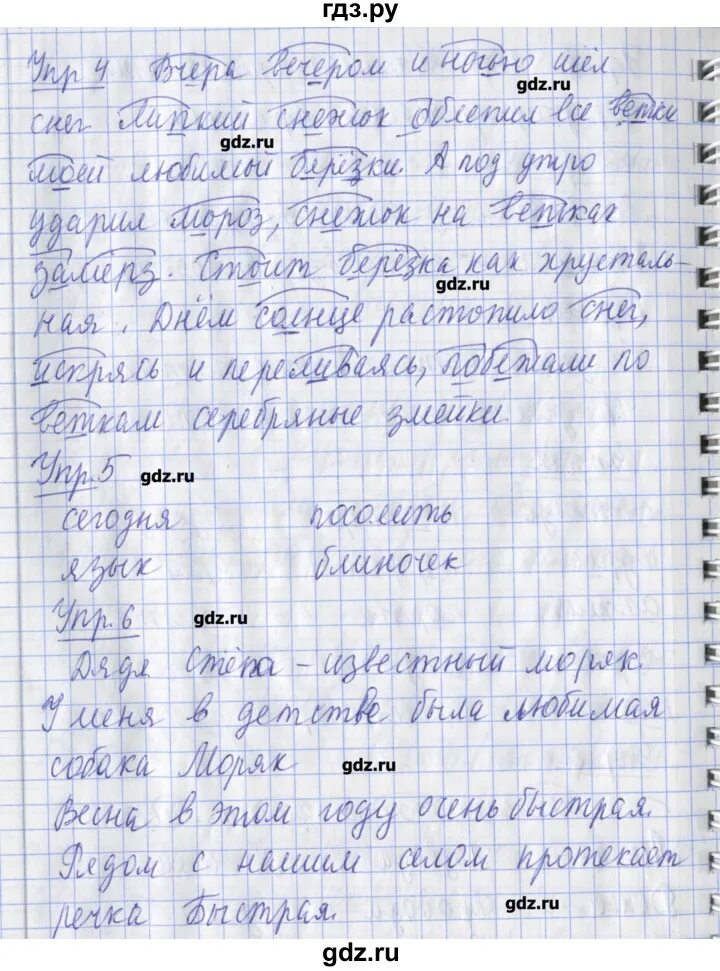 гдз.ру
Упр 4 Вчера вечером и ночью шёл
gdz.ru
снег Липкий снежок облепил все ветки
gdz.ru
моей любимой берёзки. А под утро
ударил мороз, снежок на ветках
замёрз. Стоит берёзка как хрусталь-
gdz.ru
ная. Днём солнце растопило снег,
искрясь и переливаясь, побежали по
веткам серебряные змейки.
Упр.5 gdz.ru
сегодня посолить
язык блиночек
Упр.6 gdz.ru
Дядя Стёпа – известный моряк.
У меня в детстве была любимая
собака Моряк gdz.ru
Весна в этом году очень быстрая.
Рядом с нашим селом протекает
речка Быстрая. gdz.ru
gdz.ru